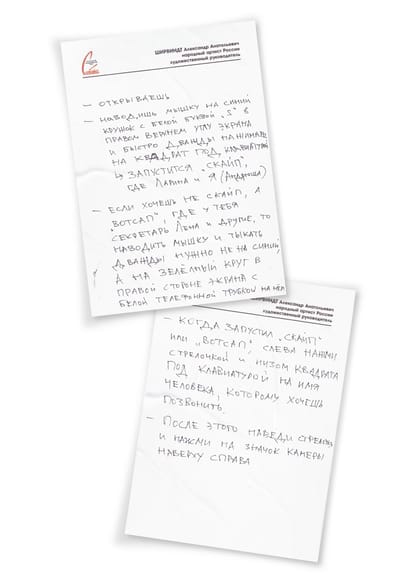 ШИРВИНДТ Александр Анатольевич
народный артист России
художественный руководитель
— ОТКРЫВАЕШЬ
— НАВОДИШЬ МЫШКУ НА СИНИЙ
КРУЖОК С БЕЛОЙ БУКВОЙ „S" В
ПРАВОМ ВЕРХНЕМ УГЛУ ЭКРАНА
И БЫСТРО ДВАЖДЫ НАЖИМАЕШЬ
НА КВАДРАТ ПОД КЛАВИАТУРОЙ
↳ ЗАПУСТИТСЯ „СКАЙП",
ГДЕ ЛАРИНА И Я (Андрюша)
— ЕСЛИ ХОЧЕШЬ НЕ СКАЙП, А
„ВОТСАП", ГДЕ У ТЕБЯ
СЕКРЕТАРЬ ЛЕНА И ДРУГИЕ, ТО
НАВОДИТЬ МЫШКУ И ТЫКАТЬ
ДВАЖДЫ НУЖНО НЕ НА СИНИЙ,
А НА ЗЕЛЁНЫЙ КРУГ В
ПРАВОЙ СТОРОНЕ ЭКРАНА С
БЕЛОЙ ТЕЛЕФОННОЙ ТРУБКОЙ НА НЁМ
ШИРВИНДТ Александр Анатольевич
народный артист России
художественный руководитель
— КОГДА ЗАПУСТИЛ „СКАЙП"
ИЛИ „ВОТСАП", СЛЕВА НАЖМИ
СТРЕЛОЧКОЙ И НИЗОМ КВАДРАТА
ПОД КЛАВИАТУРОЙ НА ИМЯ
ЧЕЛОВЕКА, КОТОРОМУ ХОЧЕШЬ
ПОЗВОНИТЬ.
— ПОСЛЕ ЭТОГО НАВЕДИ СТРЕЛОЧКУ
И НАЖМИ НА ЗНАЧОК КАМЕРЫ
НАВЕРХУ СПРАВА